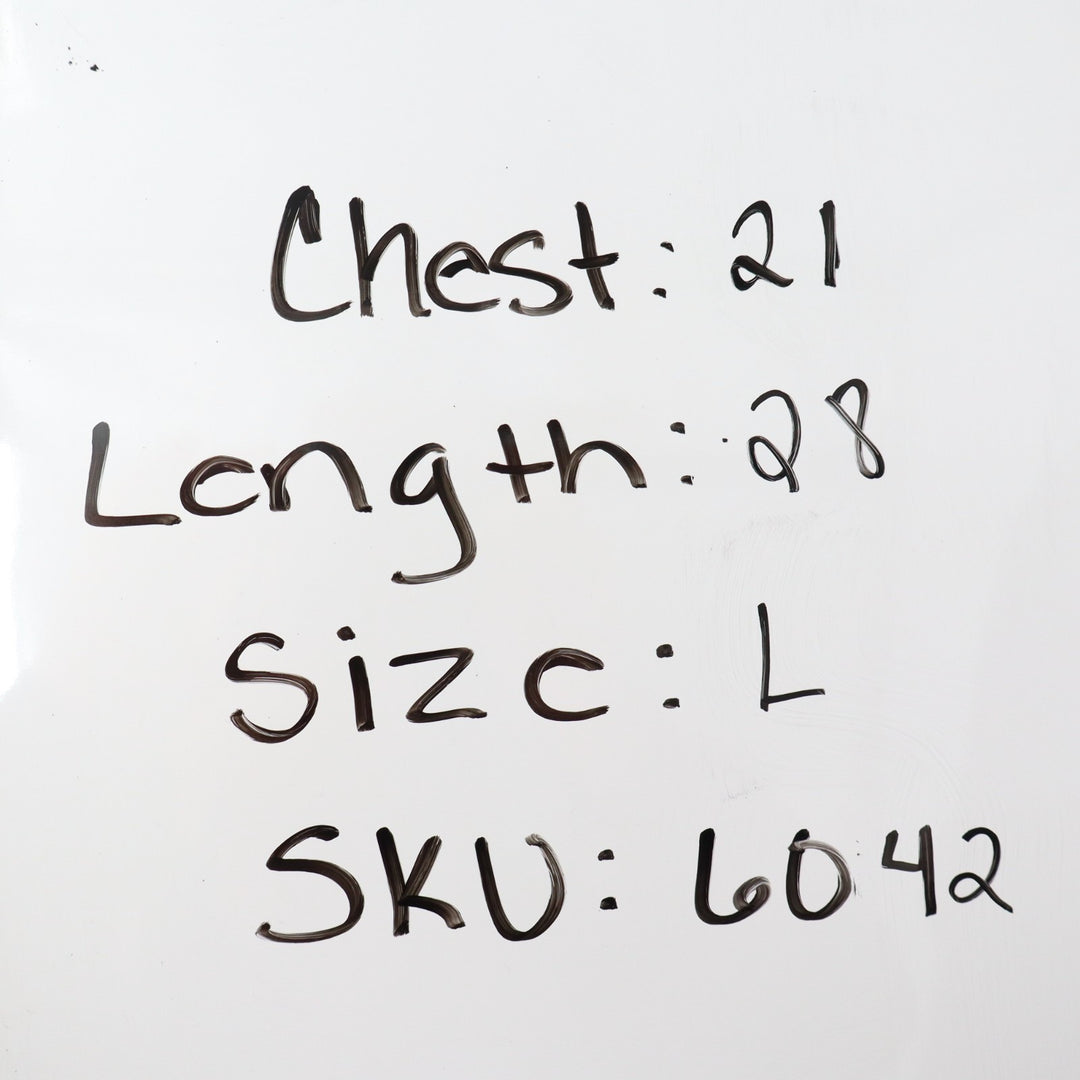 Chest: 21
Length: 28
Size: L
SKU: 6042